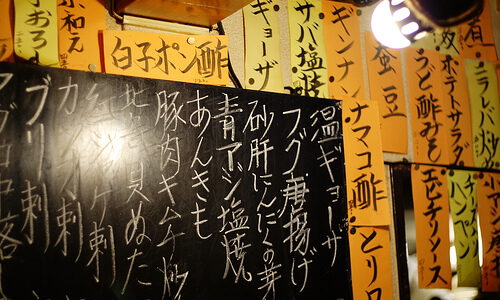 ニラレバ炒
ポテトサラダ
うど酢みそ
蚕豆
ギンナン
サバ塩焼
ギョーザ
白子ポン酢
和え
おろし
エビチリソース
ハンペン
ナマコ酢
とり
温ギョーザ
フグ唐揚げ
砂肝にんにくの芽
青アジ塩焼
あんきも
豚肉キムチ炒
貝ぬた
刺
刺
ブリ刺
マグロ中落